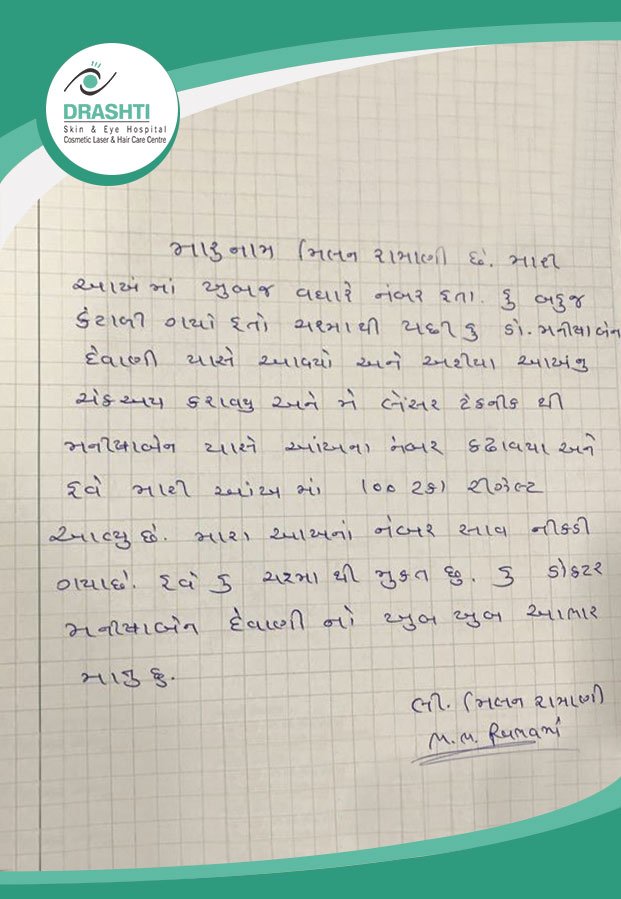 DRASHTI
Skin & Eye Hospital
Cosmetic Laser & Hair Care Centre
મારુ નામ મિલન રામાણી છે. મારી
આખં માં ખુબજ વધારે નંબર હતા. હું બહુજ
કંટાળી ગયો હતો ચશ્માથી પછી હુ ડો. મનીષાબેન
દેવાણી પાસે આવયો અને અહીયા આખંનુ
ચેકઅપ કરાવ્યુ અને મે લેસર ટેકનીક થી
મનીષાબેન પાસે આંખના નંબર કઢાવયા અને
હવે મારી આંખ માં 100 ટકા રીઝલ્ટ
આવ્યુ છે. મારા આખનાં નંબર સાવ નીકળી
ગયાછે. હવે હુ ચશ્મા થી મુકત છુ. હુ ડોકટર
મનીષાબેન દેવાણી નો ખુબ ખુબ આભાર
માનુ છુ.
લી. મિલન રામાણી
M.M. Ramani